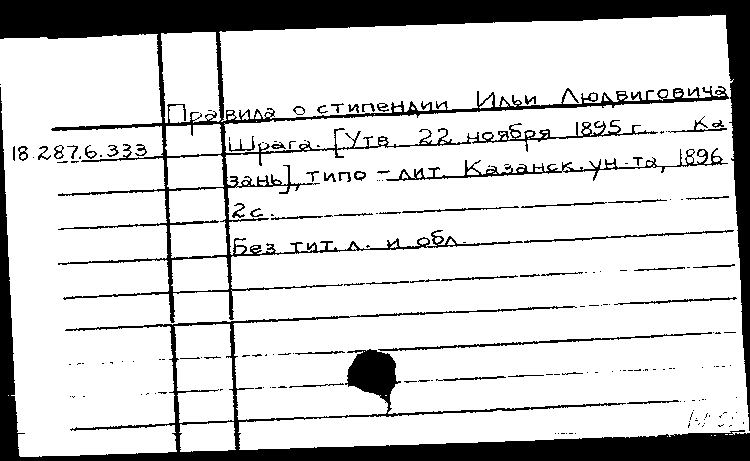 Правила о стипендии Ильи Людвиговича
18.287.6.333 Шрага. [Утв. 22 ноября 1895 г. Ка
зань], типо-лит. Казанск. ун-та, 1896.
2 с.
Без тит. л. и обл.